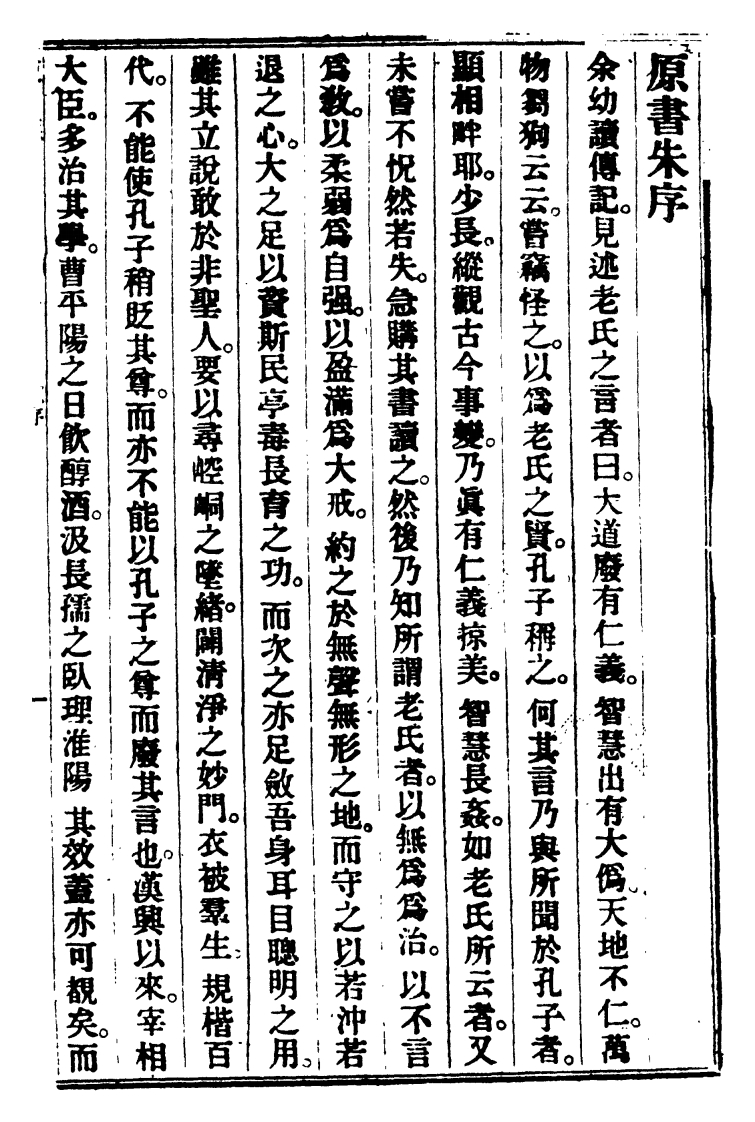 原書朱序
余幼讀傳記。見述老氏之言者曰。大道廢有仁義。智慧出有大僞。天地不仁。萬
物芻狗云云。嘗竊怪之。以爲老氏之賢。孔子稱之。何其言乃與所聞於孔子者。
顯相畔耶。少長。縱觀古今事變。乃眞有仁義掠美。智慧長姦。如老氏所云者。又
未嘗不怳然若失。急購其書讀之。然後乃知所謂老氏者。以無爲爲治。以不言
爲教。以柔弱爲自强。以盈滿爲大戒。約之於無聲無形之地。而守之以若沖若
退之心。大之足以資斯民亭毒長育之功。而次之亦足斂吾身耳目聰明之用。
雖其立說敢於非聖人。要以尋崆峒之墜緒。闡淸淨之妙門。衣被羣生。規楷百
代。不能使孔子稍貶其尊。而亦不能以孔子之尊而廢其言也。漢興以來。宰相
大臣。多治其學。曹平陽之日飮醇酒。汲長孺之臥理淮陽 其效蓋亦可覩矣。而
序
一